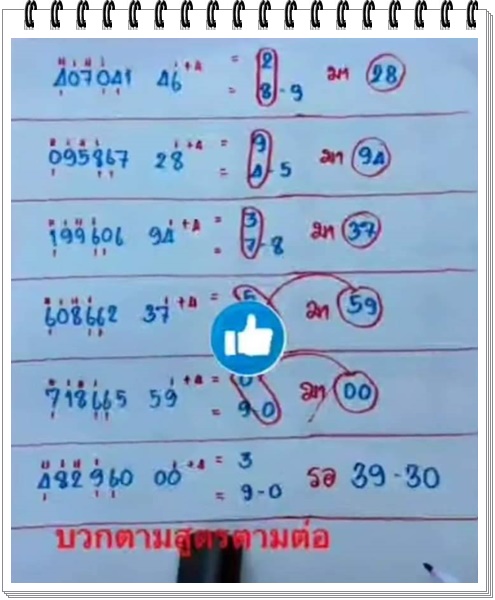 407041 46 +4 = 2
= 8-9 มา 28
095867 28 +4 = 9
= 4-5 มา 94
199606 94 +4 = 3
= 7-8 มา 37
608662 37 +4 = 5
มา 59
718665 59 +4 = 0
= 9-0 มา 00
482960 00 +4 = 3
= 9-0 รอ 39-30
บวกตามสูตรตามต่อ